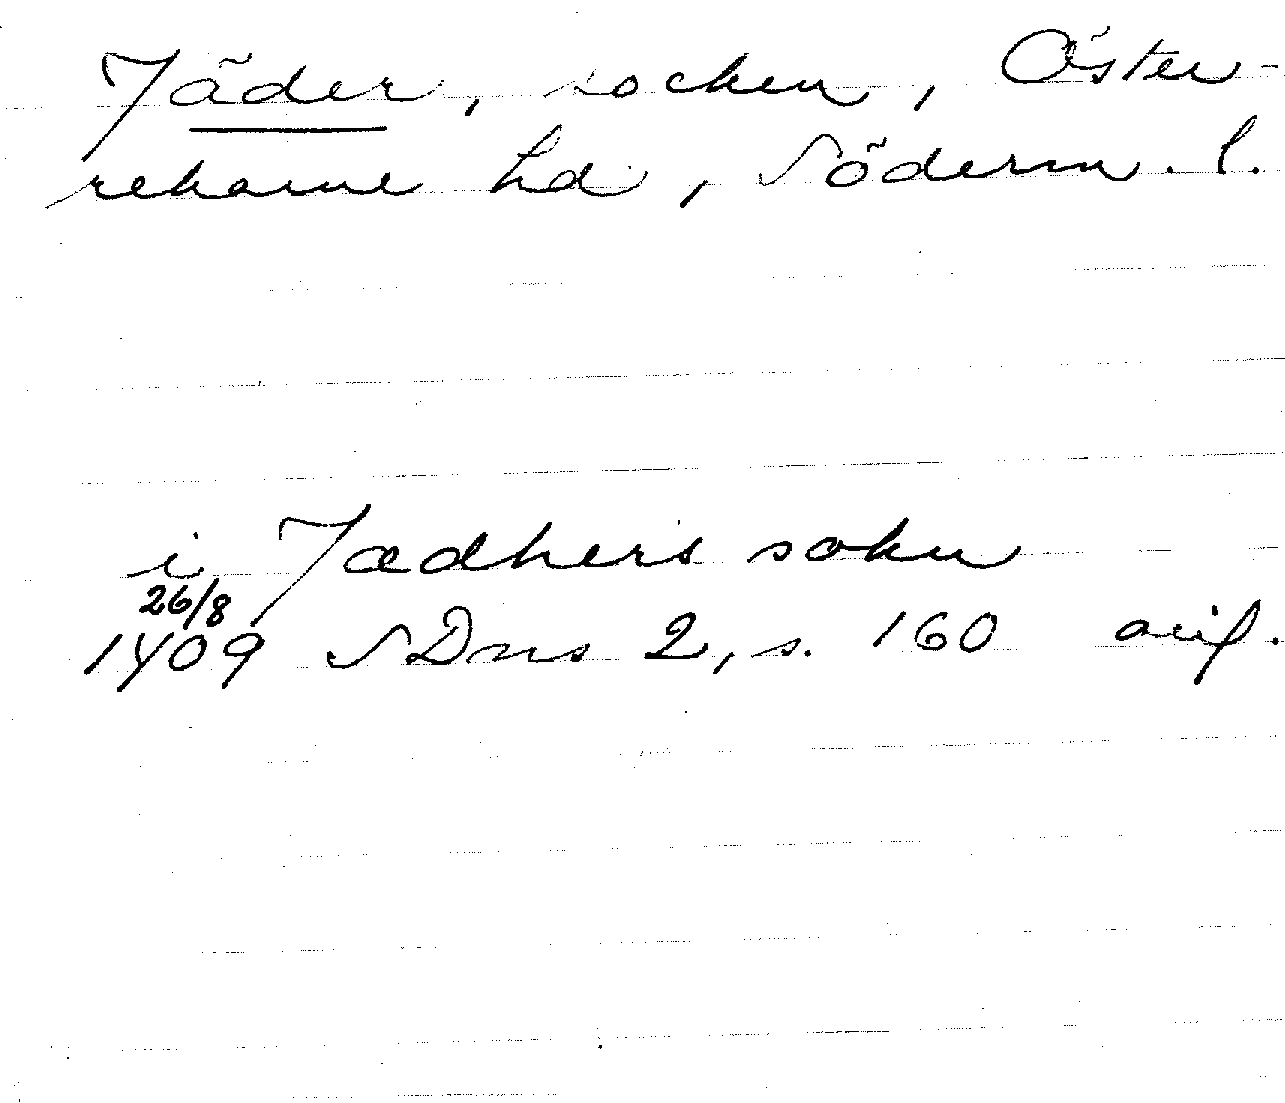 Jäder, socken, Öster-
rekarne hd, Söderm. l.
i Jædhers sokn
26/8
1409 SDns 2, s. 160 orig.